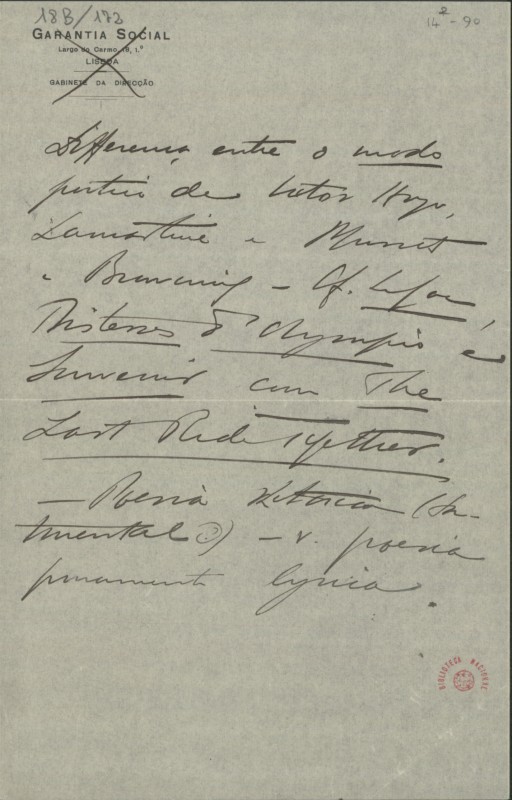 18B/173
14²-90
GARANTIA SOCIAL
Largo do Carmo, 19, 1.º
LISBOA
GABINETE DA DIRECÇÃO
Differença entre o modo
poetico de Victor Hugo,
Lamartine e Musset
e Browning – Cf. Le Lac,
Tristesse d'Olympio e
Souvenir com The
Last Ride Together.
— Poesia rhetorica (sen-
timental?) – v. poesia
puramente lyrica.
BIBLIOTECA NACIONAL